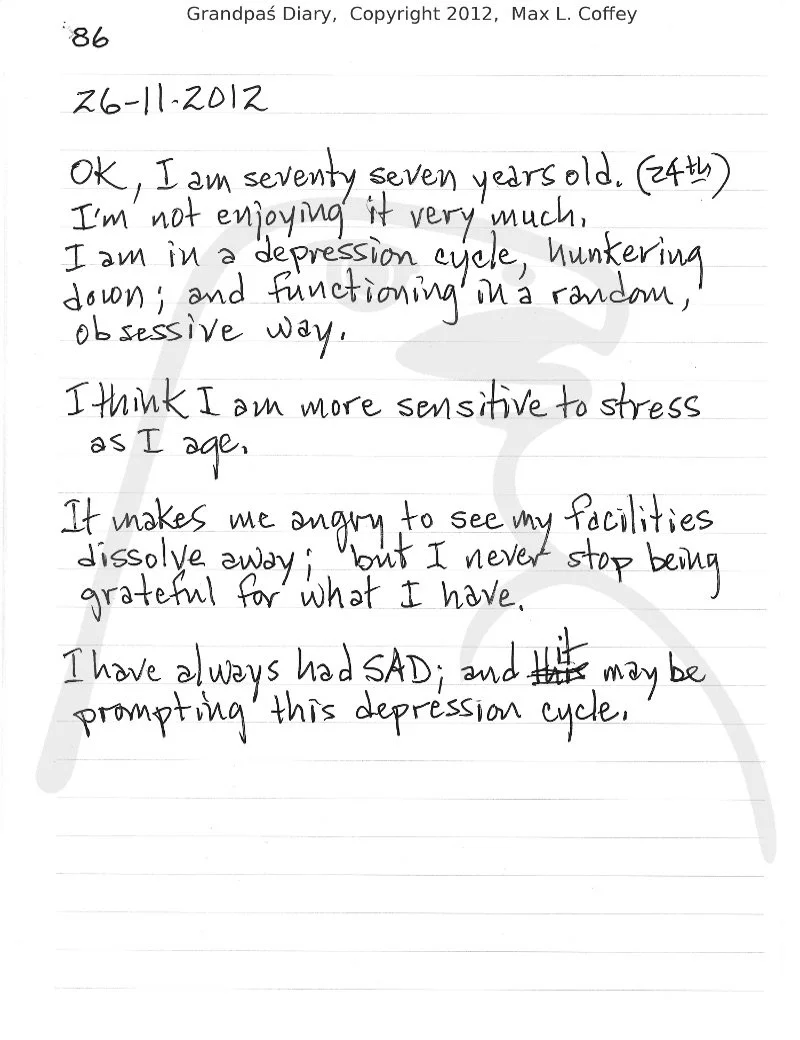 Grandpaś Diary, Copyright 2012, Max L. Coffey
86
26-11-2012
OK, I am seventy seven years old. (24th)
I'm not enjoying it very much.
I am in a depression cycle, hunkering
down; and functioning in a random,
obsessive way.
I think I am more sensitive to stress
as I age.
It makes me angry to see my facilities
dissolve away; but I never stop being
grateful for what I have.
I have always had SAD; and it may be
prompting this depression cycle.